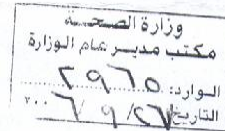 وزارة الصحة
مكتب مدير عام الوزارة
الوارد: ٢٩٦٥
التاريخ ٢٦/٩/٦ ٢٠٠